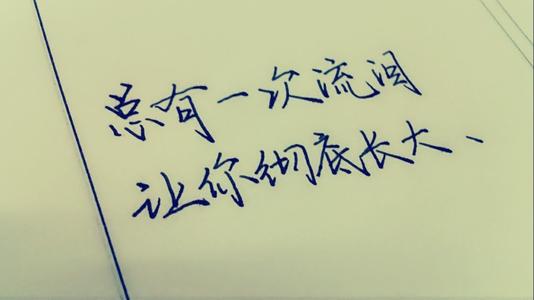 总有一次流泪
让你彻底长大、